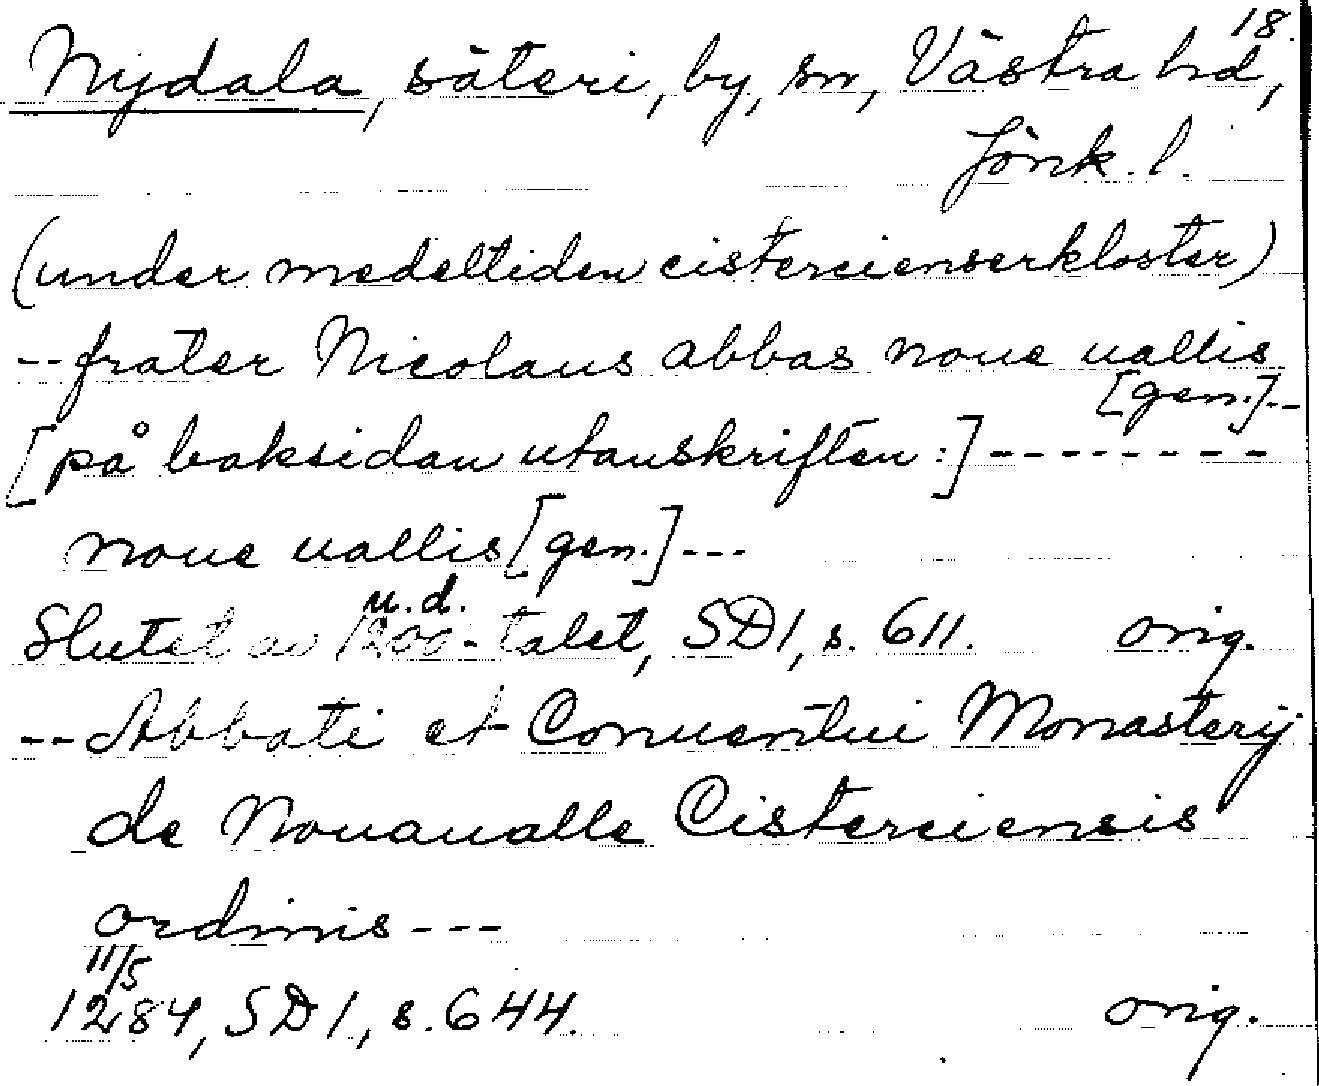 18.
Nydala, säteri, by, sn, Västra hd,
Jönk. l.
(under medeltiden cistercienserkloster)
-- frater Nicolaus abbas noue uallis
[gen.]--
[på baksidan utanskriften:] --------
noue uallis [gen.] ---
u.d.
Slutet av 1200-talet, SD1, s. 611. orig.
-- Abbati et Conuentui Monasterij
de Nouaualle Cisterciensis
ordinis ---
11/5
1284, SD1, s. 644. orig.